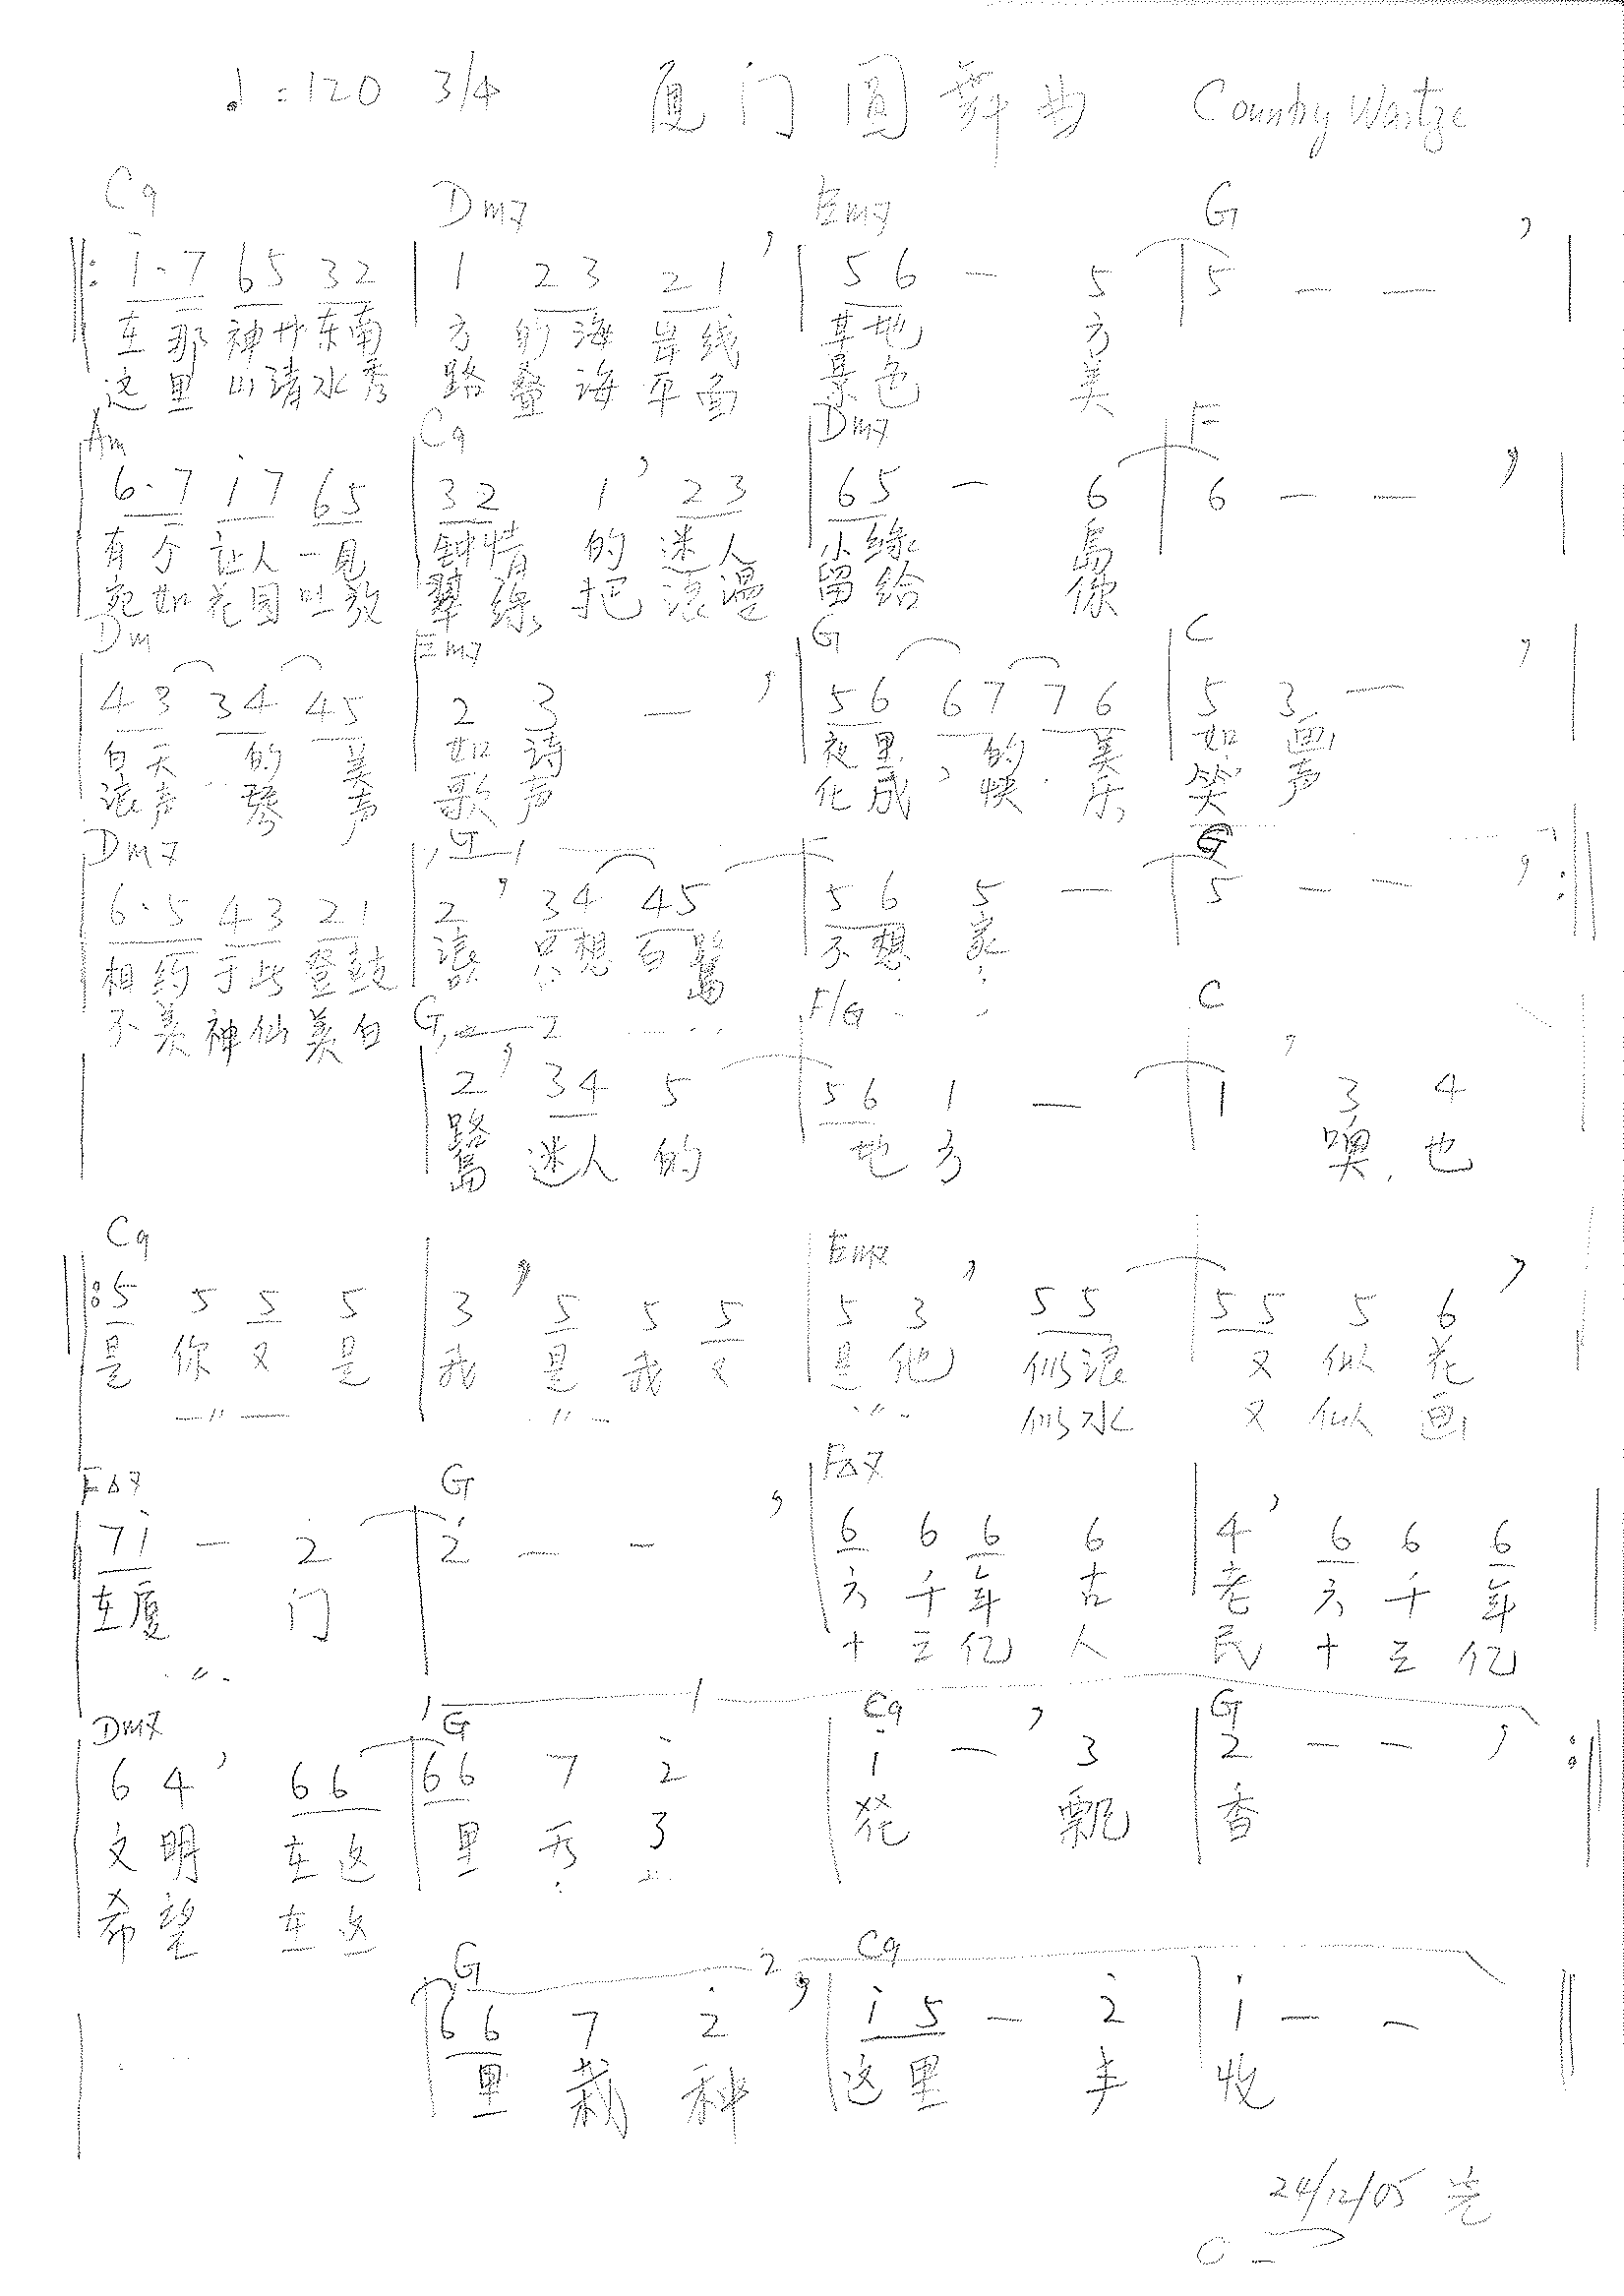 ♩=120 3/4 厦门圆舞曲 Country Wastze
C9 Dm7 Em7 G
‖: i·7 65 32 | 1 23 21 ' | 56 - 5 | 5 - - ' |
在那神州东南 方的海岸线 草地 方
这里山清水秀 路叠海平面 景色 美
Am C9 Dm7 F
| 6·7 i7 65 | 32 1 ' 23 | 65 - 6 | 6 - - ' |
有个让人一见 钟情的迷人 小绿 岛
宛如花园吐散 翠绿把浪漫 留给 你
Dm Em7 G C
| 43 34 45 | 2 3 - ' | 56 67 76 | 5 3 - ' |
白天 的 美 如诗 夜里 的 美 如画
浪声 琴 声 歌声 化成 快 乐 笑声
Dm7 G 1 F G
| 6·5 43 21 | 2 ' 34 45 | 56 5 - | 5 - - ' :‖
相约于此登鼓 浪 只想 白鹭 不想 家
不羡神仙羡白 G 2 F/G C
| 2 ' 34 5 | 56 1 - | 1 ' 3 4
鹭 迷人的 地方 噢, 也
C9 Em7
‖: 5 5 5 5 | 3 ' 5 5 5 | 5 3 ' 55 | 55 5 6 ' |
是你又是 我 是我又 是他 似浪 又似花
—〃— -〃- -〃- 似水 又似画
F△7 G F△7
| 7i - 2 | 2 - - ' | 6 6 6 6 | 4 ' 6 6 6 |
在厦 门 六千年古 老 六千年
-〃- 十三亿人 民 十三亿
Dm7 G 1 C9 G
| 6 4 ' 66 | 66 7 2 | i - ' 3 | 2 - - ' :‖
文明 在这 里 花 飘 香
希望 在这
G 2 C9
| 66 7 2 ' | i5 - 2 | i - - ‖
里栽种 这里 丰 收
24/12/05
C -